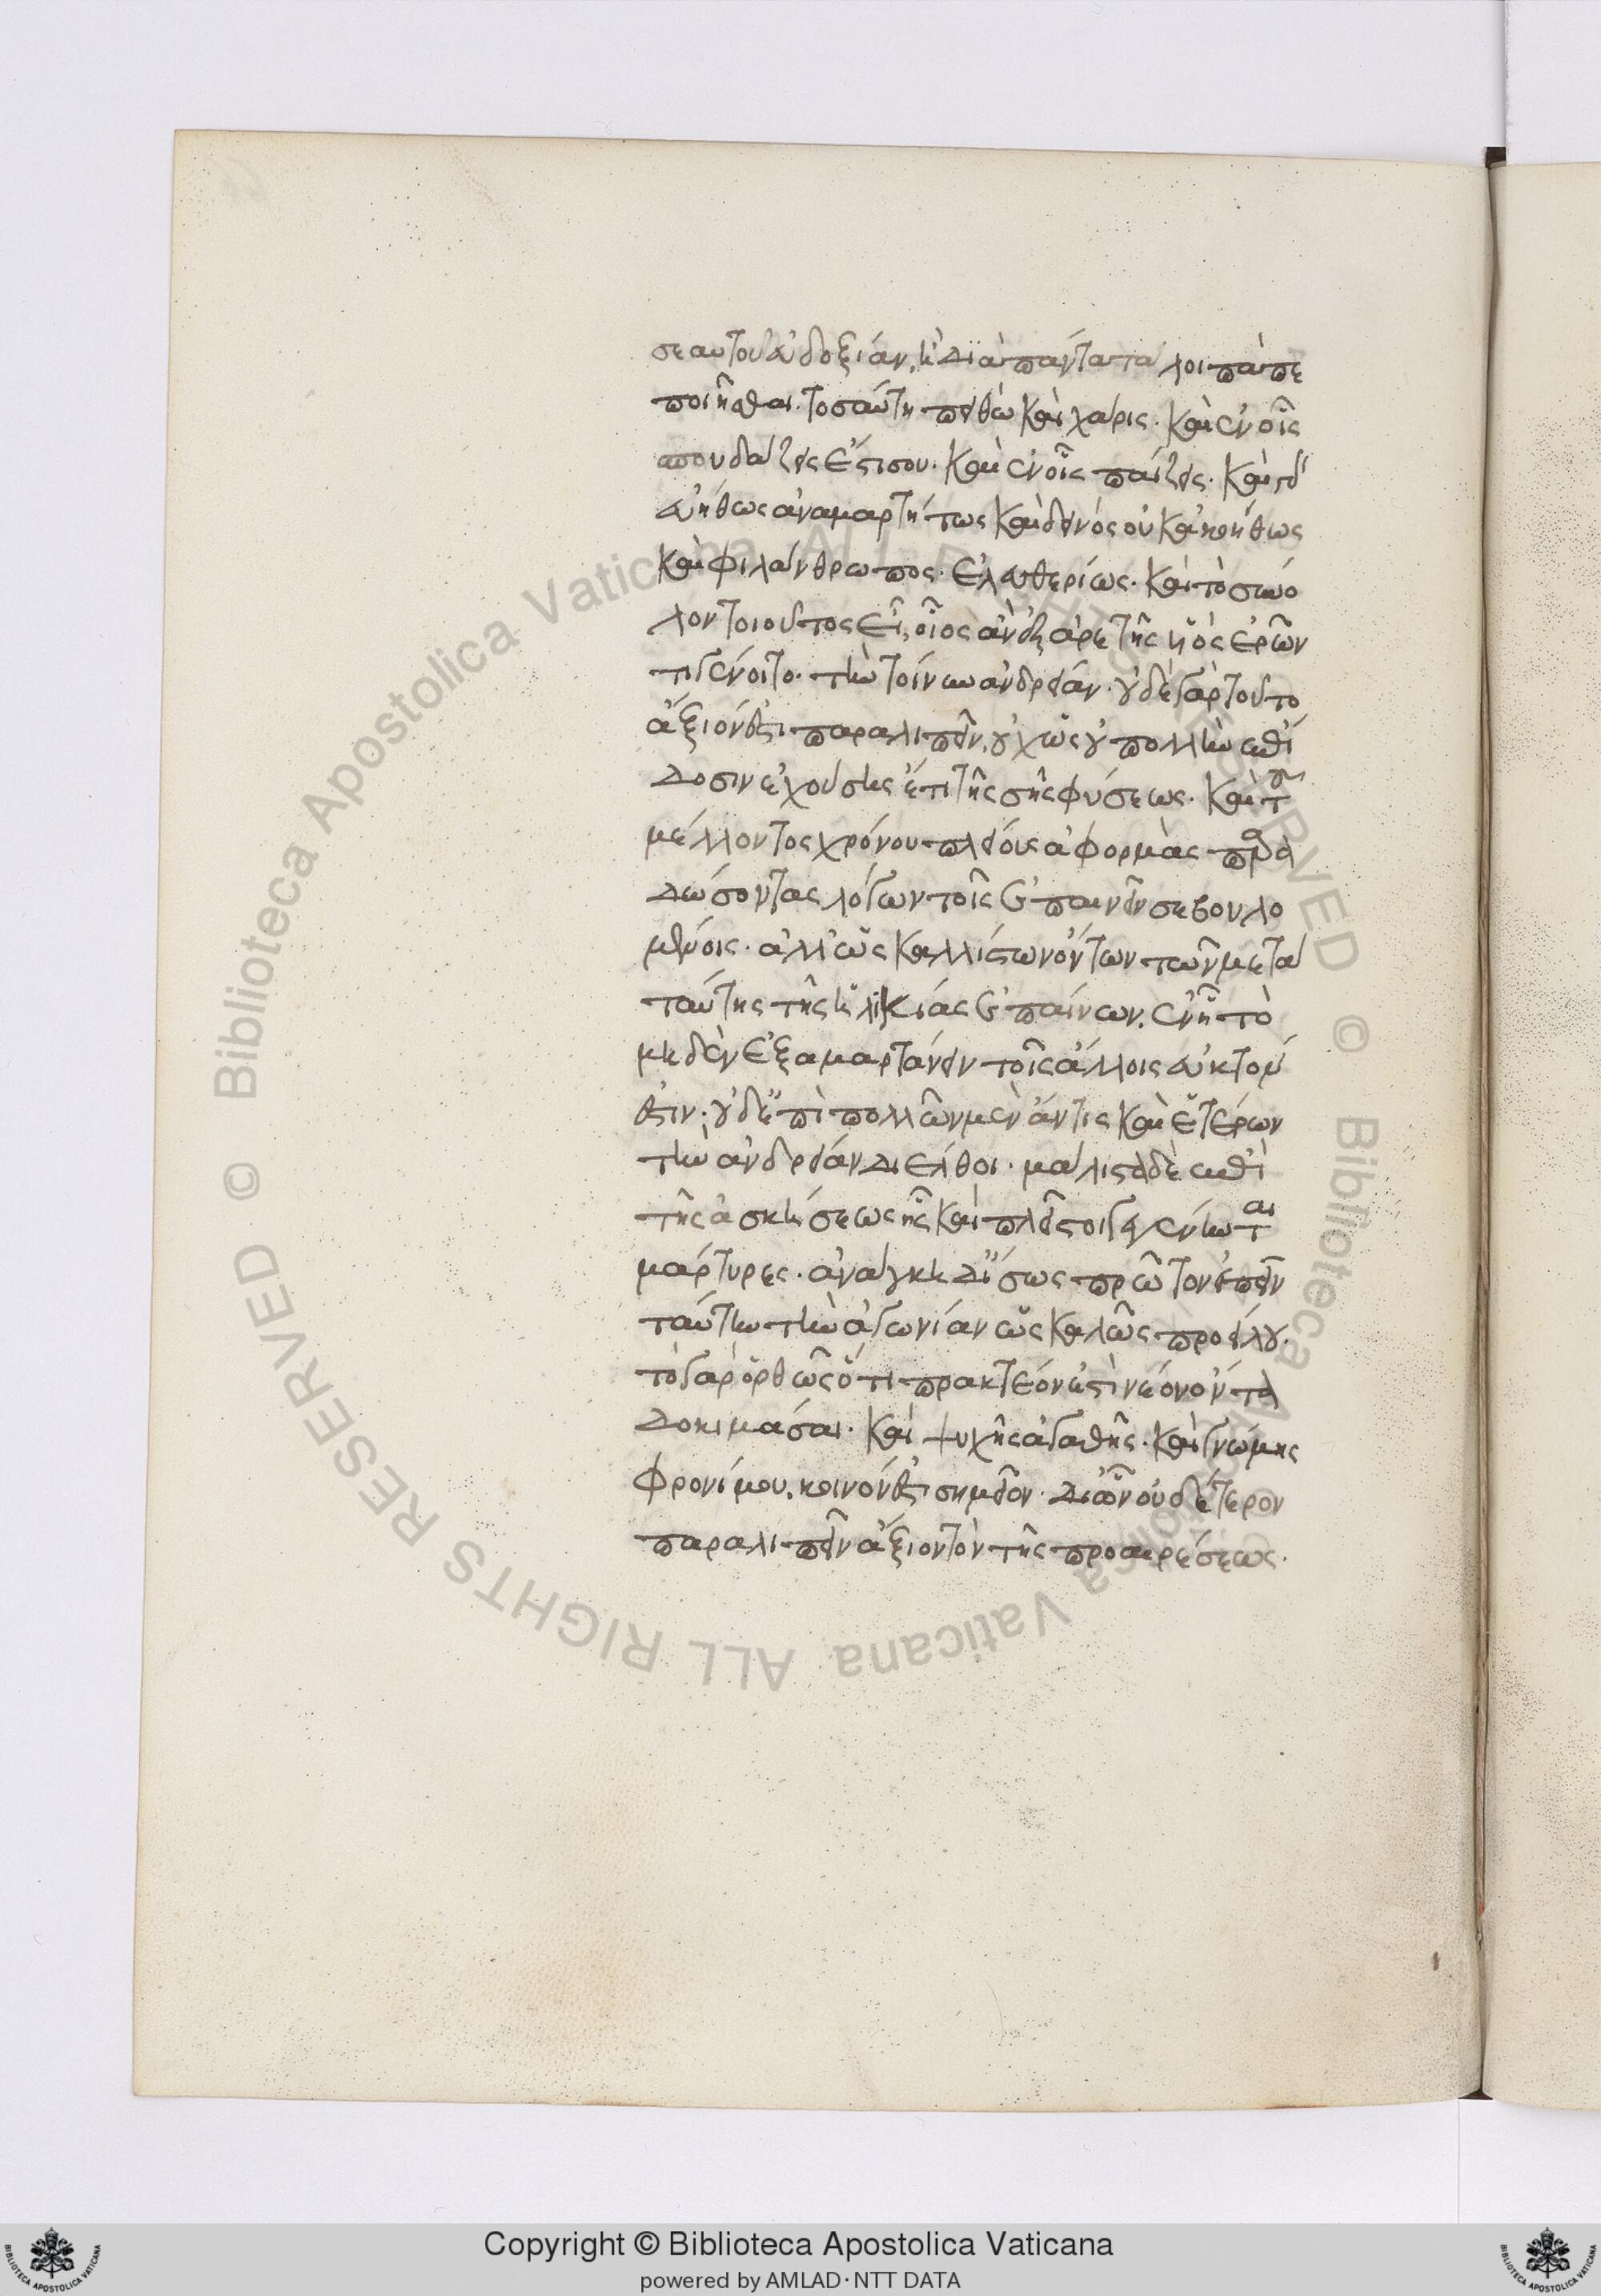 σεαυτοῦ εὐδοξίαν, ἢ διὰ πάντα τὰ λοιπὰ πε
ποιῆσθαι. τοσαύτη πειθὼ καὶ χάρις. καὶ ἐν οἷς
σπουδάζεις ἔστι σου. καὶ ἐν οἷς παίζεις. καὶ γὰρ
εὐήθως ἀναμαρτήτως καὶ δεινὸς οὐ κακοήθως
καὶ φιλάνθρωπος. ἐλευθερίως. καὶ τὸ σύνο
λον τοιοῦτος εἶ, οἷος ἂν ἐξ ἀρετῆς υἱὸς ἐρῶν
τι γένοιτο. τὴν τοίνυν ἀνδρείαν. οὐδὲ γὰρ τοῦτο
ἄξιόν ἐστι παραλιπεῖν, οὐχ ὡς οὐ πολλὴν ἐπί
δοσιν ἐχούσης ἔτι τῆς σῆς φύσεως. καὶ τοῦ
μέλλοντος χρόνου πλείους ἀφορμὰς παρα
δώσοντας λόγων τοῖς ἐπαινεῖν σε βουλο
μένοις. ἀλλ' ὡς καλλίστων ὄντων τῶν μετὰ
ταύτης τῆς ἡλικίας ἐπαίνων. ἐν ᾗ τὸ
μηδὲν ἐξαμαρτάνειν τοῖς ἄλλοις εὐκτόν
ἐστιν. οὐδ' ἐπὶ πολλῶν μὲν ἄν τις καὶ ἑτέρων
τὴν ἀνδρείαν διέλθοι. μάλιστα δὲ ἐπὶ
τῆς ἀσκήσεως ἧς καὶ πλεῖστοι γεγένηνται
μάρτυρες. ἀνάγκη δ' ἴσως πρῶτον εἰπεῖν
ταύτην τὴν ἀγωνίαν ὡς καλῶς προείλου.
τὸ γὰρ ὀρθῶς ὅτι πρακτέον ἐστὶ νέον ὄντα
δοκιμάσαι. καὶ ψυχῆς ἀγαθῆς. καὶ γνώμης
φρονίμου. κοινόν ἐστι σημεῖον. δι' ὧν οὐδέτερον
παραλιπεῖν ἄξιον τὸν τῆς προαιρέσεως.
Copyright © Biblioteca Apostolica Vaticana
powered by AMLAD·NTT DATA